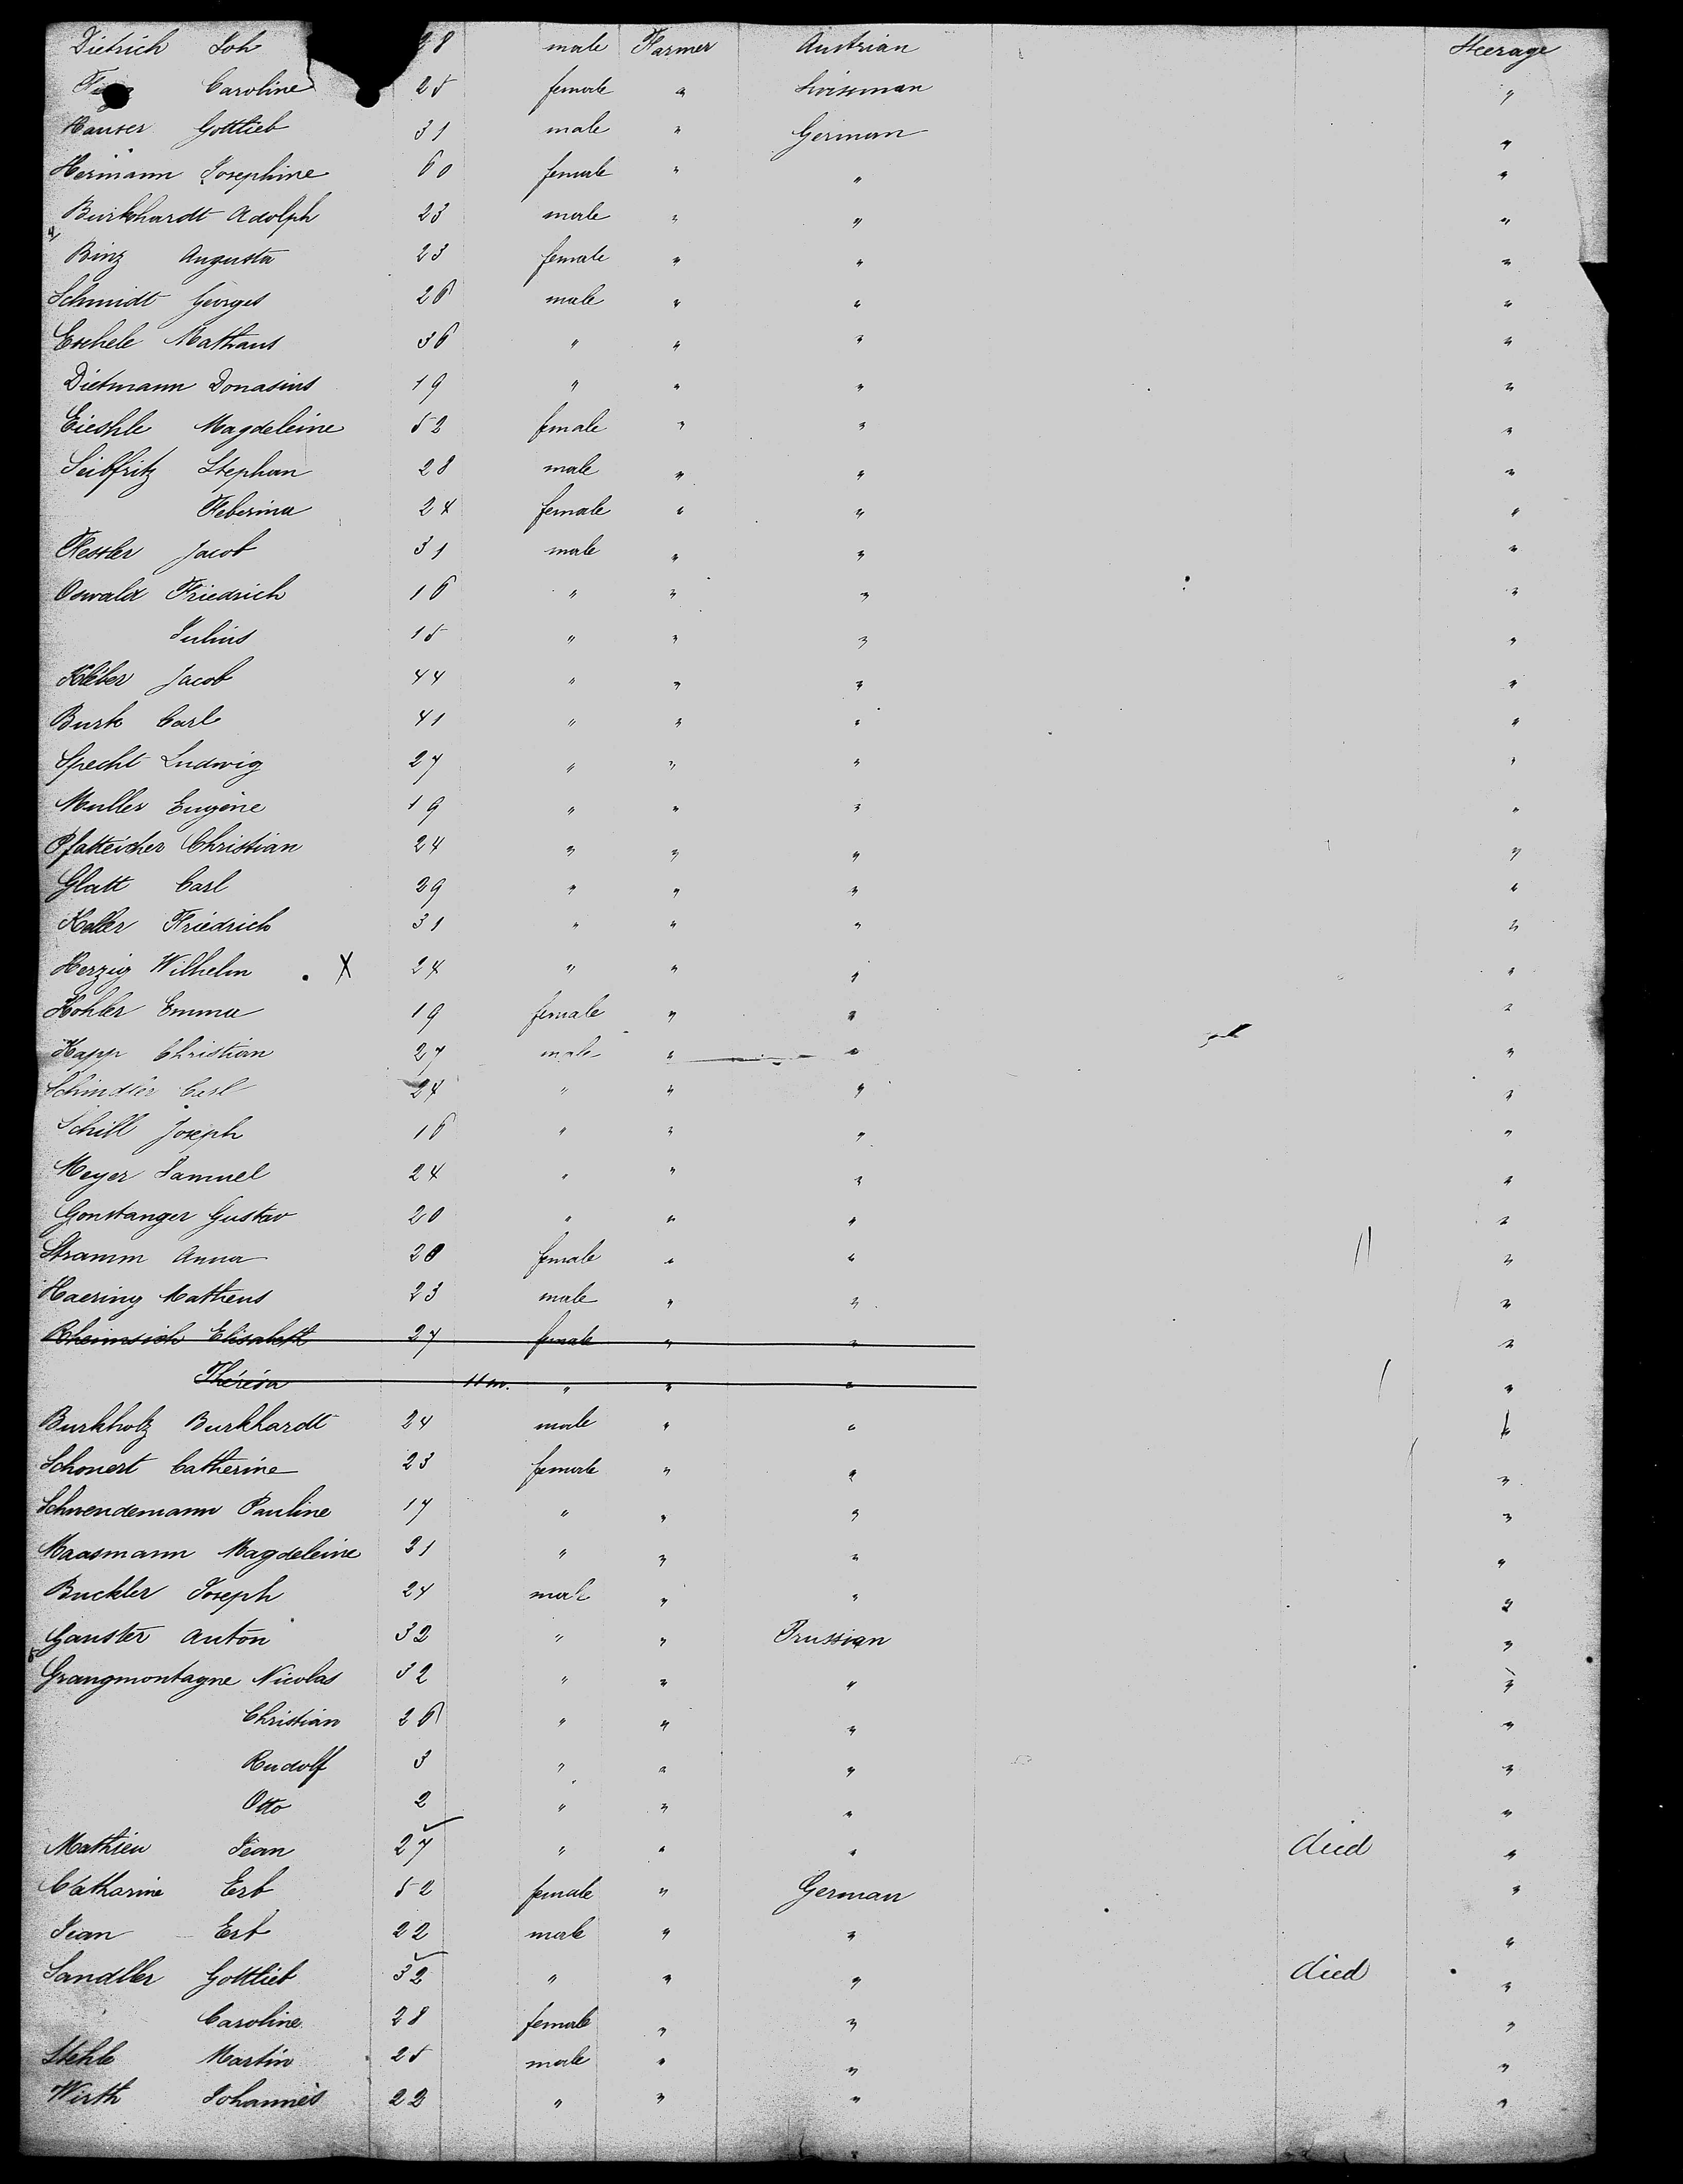 Dietrich Joh 8 male Farmer Austrian Steerage
Caroline 25 female " Swissman "
Hauser Gottlieb 31 male " German "
Hermann Josephine 60 female " " "
Burkhardt Adolph 23 male " " "
Binz Augusta 23 female " " "
Schmidt Georges 26 male " " "
Eschele Mathaus 36 " " " "
Dietmann Donasius 19 " " " "
Eieshle Magdeleine 52 female " " "
Seibfritz Stephan 28 male " " "
Feberina 24 female " " "
Fessler Jacob 31 male " " "
Oswald Friedrich 16 " " " "
Julius 15 " " " "
Kleber Jacob 44 " " " "
Burk Carl 41 " " " "
Specht Ludwig 27 " " " "
Muller Eugène 19 " " " "
Pfatteicher Christian 24 " " " "
Glatt Carl 29 " " " "
Keller Friedrich 31 " " " "
Herzig Wilhelm . X 24 " " " "
Kohler Emma 19 female " " "
Kapp Christian 27 male " " "
Schindler Carl 24 " " " "
Schill Joseph 16 " " " "
Meyer Samuel 24 " " " "
Gonstanger Gustav 20 " " " "
Stramm Anna 20 female " " "
Haering Matheus 23 male " " "
Rheinsich Elisabeth 27 female " " "
Thérésa 11 m. " " " "
Burkholz Burkhardt 24 male " " "
Schonert Catherine 23 female " " "
Schwendemann Pauline 17 " " " "
Maasmann Magdeleine 21 " " " "
Buckler Joseph 24 male " " "
Ganster Anton 32 " " Prussian "
Grangmontagne Nicolas 32 " " " "
Christian 26 " " " "
Rudolf 3 " " " "
Otto 2 " " " "
Mathieu Jean 27 " " " died "
Catharine Erb 52 female " German "
Jean Erb 22 male " " "
Sandller Gottlieb 32 " " " died "
Caroline 28 female " " "
Stehle Martin 25 male " " "
Wirth Johannès 22 " " " "